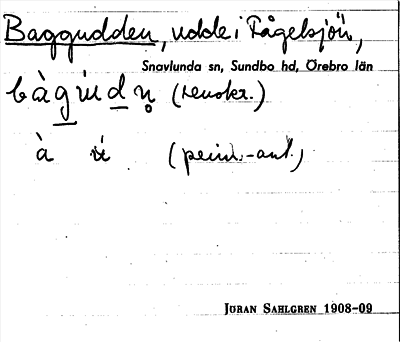 Baggudden, udde i Fågelsjön,
Snavlunda sn, Sundbo hd, Örebro län
bàgúdṇ (renskr.)
à ú (prim.-ant.)
JÖRAN SAHLGREN 1908-09